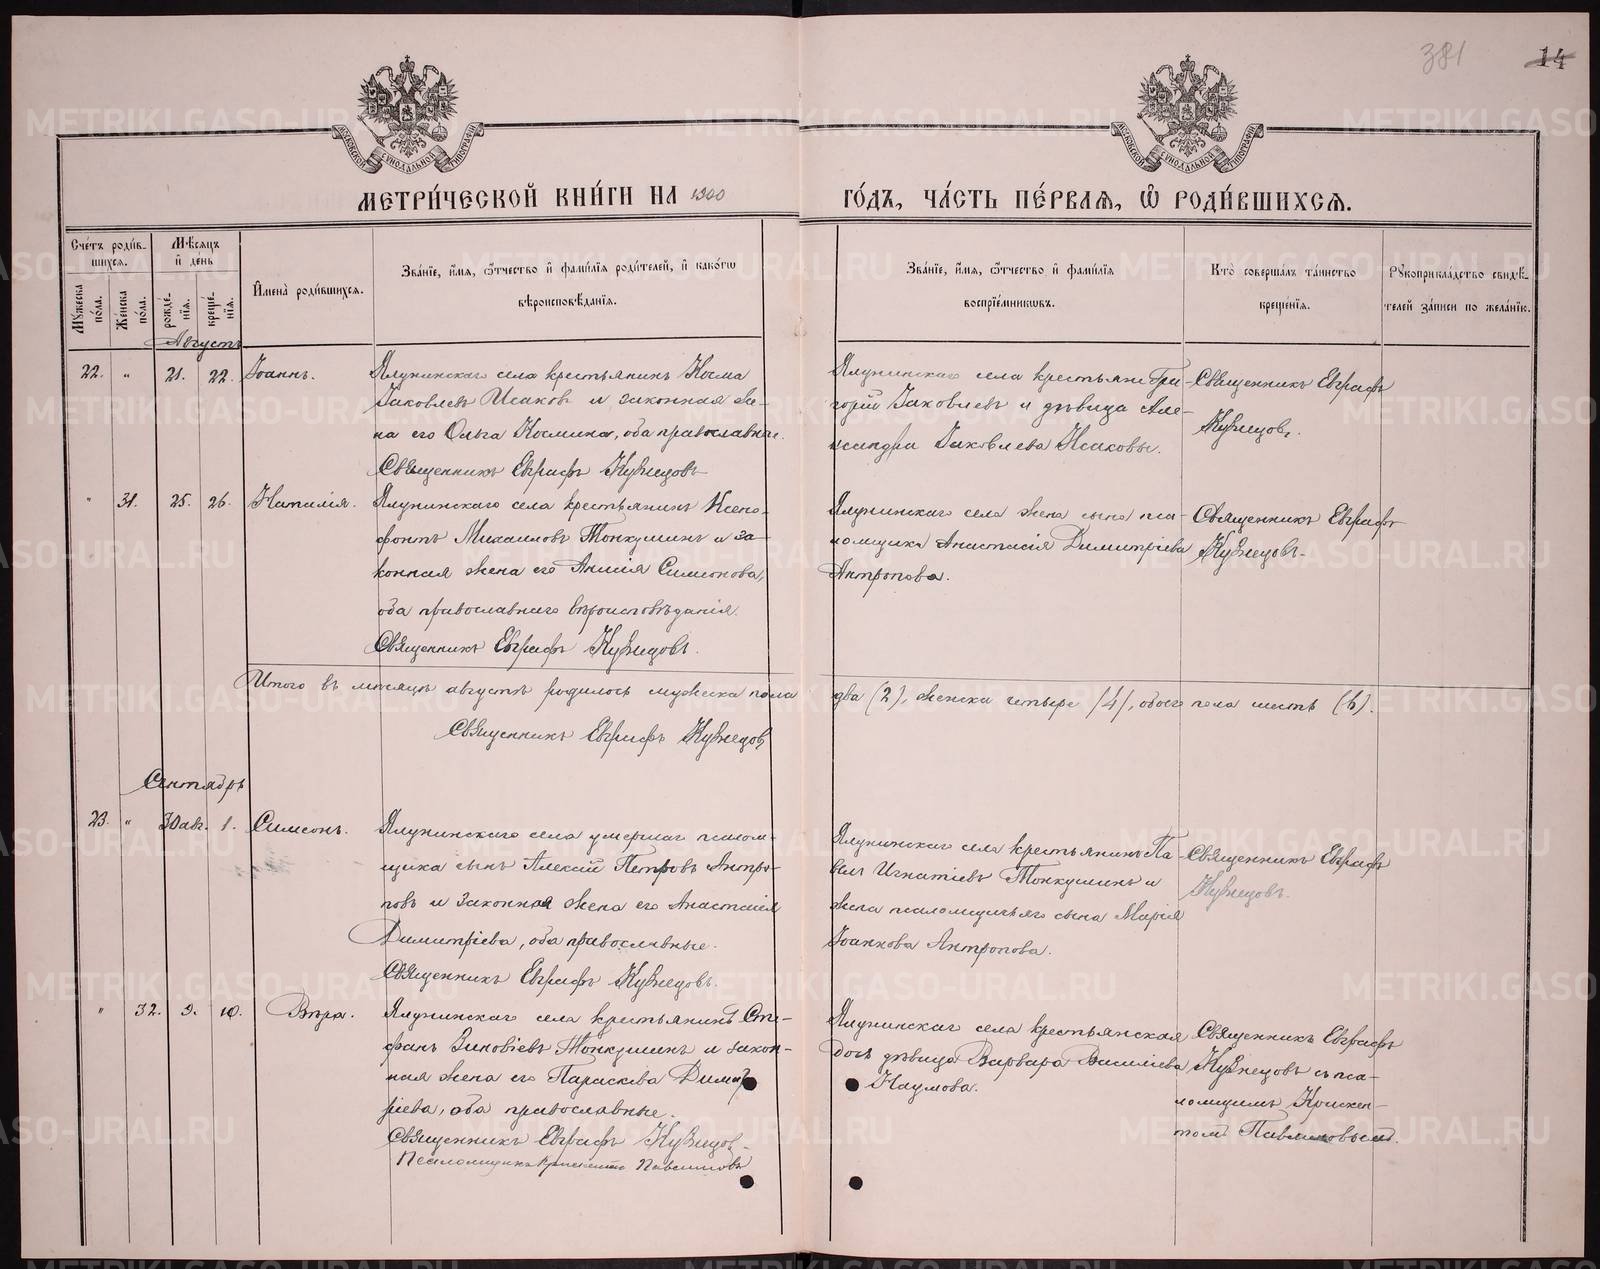 381
14
МОСКОВСКОЙ СѴНОДАЛЬНОЙ ТИПОГРАФІИ
МОСКОВСКОЙ СѴНОДАЛЬНОЙ ТИПОГРАФІИ
МЕТРИ́ЧЕСКОЙ КНИ́ГИ НА 1900
ГО́ДЪ, ЧА́СТЬ ПЕ́РВАѦ, Ѡ РОДИ́ВШИХСѦ.
Сче́тъ роди́в-
шихся.
Мѣ́сяцъ
и҆ де́нь
Мꙋ́жеска
по́ла.
Же́нска
по́ла.
рожде́-
нїя.
креще́-
нїя.
И҆мена̀ роди́вшихся.
Зва́нїе, и҆́мя, ѻ҆́тчество и҆ фами́лїя роди́телей, и҆ како́гѡ
вѣроисповѣ́данїя.
Зва́нїе, и҆́мя, ѻ҆́тчество и҆ фами́лїя
воспрїе́мникѡвъ.
Кто̀ соверша́лъ та́инство
креще́нїя.
Рꙋкоприкла́дство свидѣ́-
телей за́писи по жела́нїю.
Августъ
22. „ 21. 22. Іоаннъ.
Ялунинскаго села крестьянинъ Косма
Іаковлевъ Исаковъ и законная же-
на его Ольга Космина, оба православные.
Священникъ Евграфъ Кузнецовъ
Ялунинскаго села крестьяне Гри-
горій Іаковлевъ и дѣвица Але-
ксандра Іаковлева Исаковы.
Священникъ Евграфъ
Кузнецовъ.
„ 31. 25. 26. Наталія.
Ялунинскаго села крестьянинъ Ксено-
фонтъ Михаиловъ Тонкушинъ и за-
конная жена его Анисія Симеонова,
оба православнаго вѣроисповѣданія.
Священникъ Евграфъ Кузнецовъ.
Ялунинскаго села жена сына пса-
ломщика Анастасія Димитріева
Антропова.
Священникъ Евграфъ
Кузнецовъ.
Итого въ мѣсяцѣ августѣ родилось мужеска пола
два (2), женска четыре /4/, обоего пола шесть (6).
Священникъ Евграфъ Кузнецовъ
Сентябрь
23. „ 30 авг. 1. Симеонъ.
Ялунинскаго села умершаго псалом-
щика сынъ Алексій Петровъ Антро-
повъ и законная жена его Анастасія
Димитріева, оба православные.
Священникъ Евграфъ Кузнецовъ.
Ялунинскаго села крестьянинъ Па-
велъ Игнатіевъ Тонкушинъ и
жена псаломщичьяго сына Марія
Іоаннова Антропова.
Священникъ Евграфъ
Кузнецовъ.
„ 32. 9. 10. Вѣра.
Ялунинскаго села крестьянинъ Сте-
фанъ Зиновіевъ Тонкушинъ и закон-
ная жена его Параскева Димит-
ріева, оба православные.
Священникъ Евграфъ Кузнецовъ
Псаломщикъ Крискентъ Павлиновъ
Ялунинскаго села крестьянская
дочь дѣвица Варвара Василіева
Наумова.
Священникъ Евграфъ
Кузнецовъ съ пса-
ломщикомъ Крискен-
томъ Павлиновымъ.
METRIKI.GASO-URAL.RU